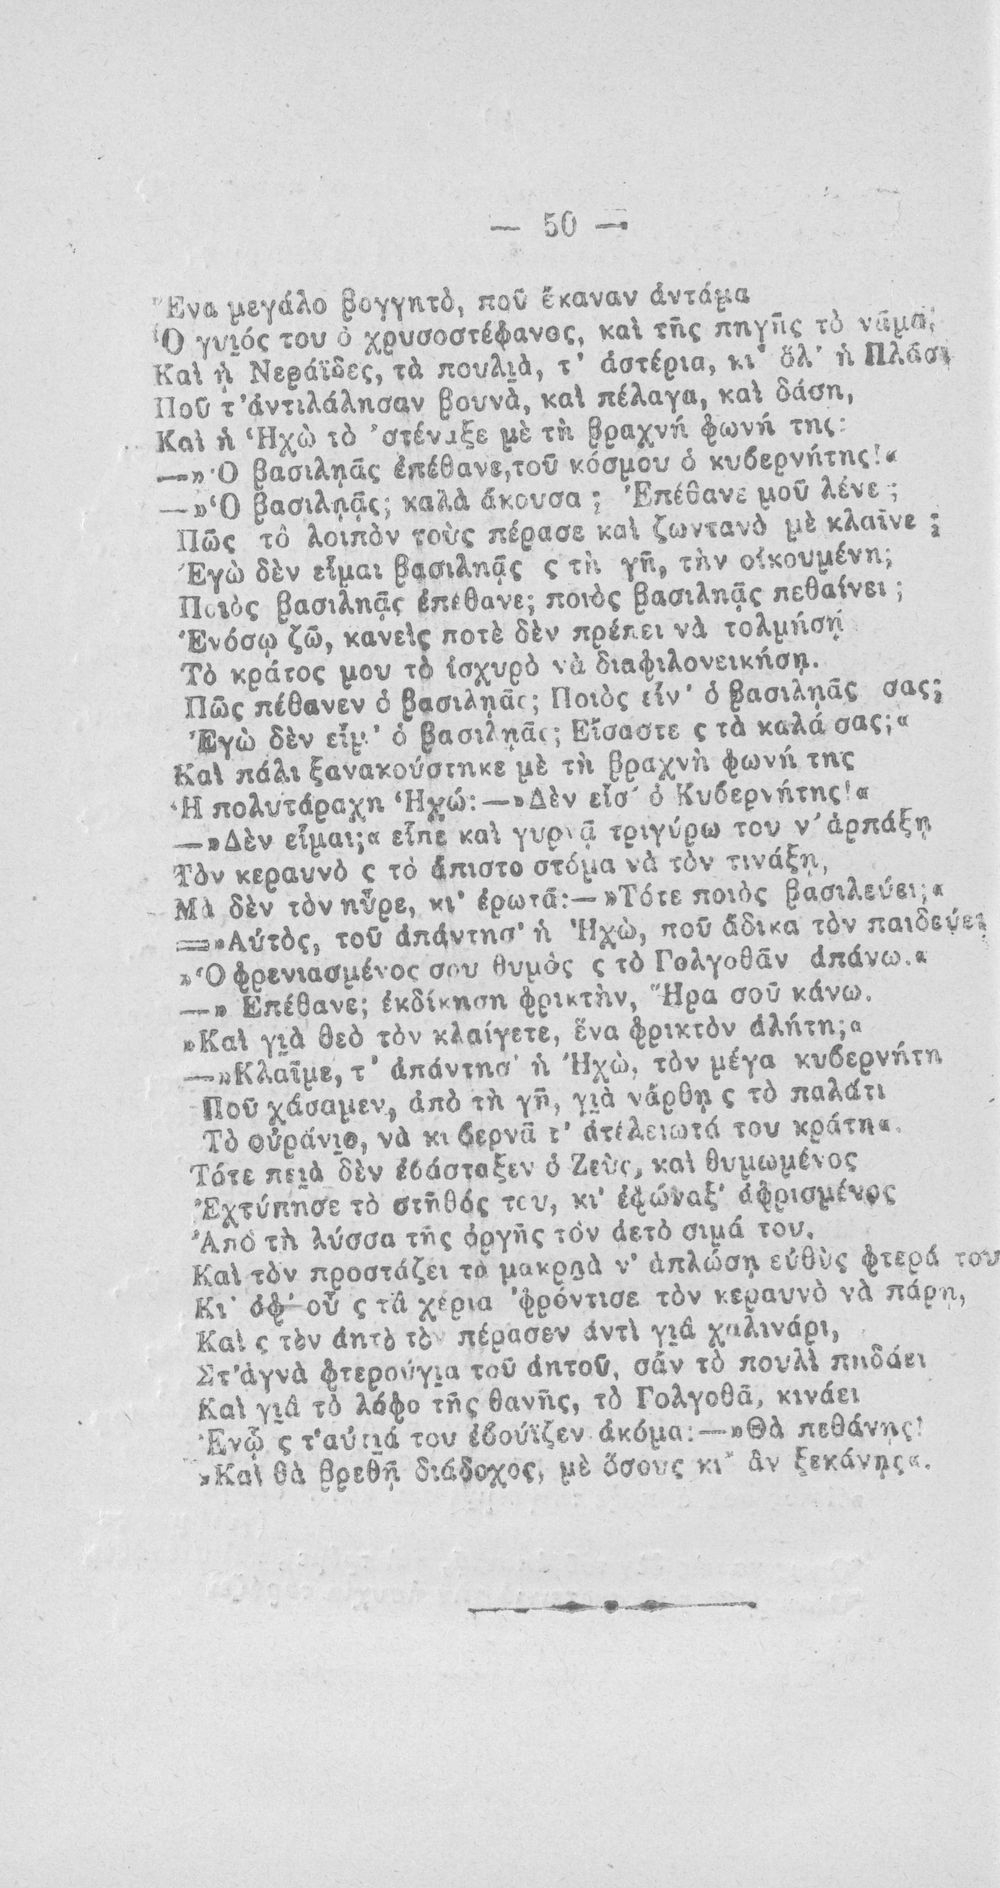 — 50 —
Ἕνα μεγάλο βογγητὸ, ποῦ ἔκαναν ἀντάμα
Ὁ γυι̮ός του ὁ χρυσοστέφανος, καὶ τῆς πηγῆς τὸ νᾶμα,
Καὶ ᾑ Νεράϊδες, τὰ πουλι̮ὰ, τ' ἀστέρια, κι' ὅλ' ἡ Πλάσι
Ποῦ τ'ἀντιλάλησαν βουνὰ, καὶ πέλαγα, καὶ δάση,
Καὶ ἡ Ἡχὼ τὸ 'στέναξε μὲ τὴ βραχνή φωνή της:
—»Ὁ βασιληᾶς ἐπέθανε,τοῦ κόσμου ὁ κυβερνήτης!«
—»Ὁ βασιληᾶς; καλὰ ἄκουσα; Ἐπέθανε μοῦ λένε;
Πῶς τὸ λοιπὸν τοὺς πέρασε καὶ ζωντανὸ μὲ κλαῖνε;
Ἐγὼ δὲν εἶμαι βασιληᾶς ς τὴ γῆ, τὴν οἰκουμένη;
Ποιὸς βασιληᾶς ἐπέθανε; ποιὸς βασιληᾶς πεθαίνει;
Ἐνόσῳ ζῶ, κανεὶς ποτὲ δὲν πρέπει νὰ τολμήσῃ
Τὸ κράτος μου τὸ ἰσχυρὸ νὰ διαφιλονεικήσῃ.
Πῶς πέθανεν ὁ βασιληᾶς; Ποιὸς εἶν' ὁ βασιληᾶς σας;
Ἐγὼ δὲν εἶμ' ὁ βασιληᾶς; Εἴσαστε ς τὰ καλά σας;«
Καὶ πάλι ξανακούστηκε μὲ τὴ βραχνὴ φωνή της
Ἡ πολυτάραχη Ἡχώ:—»Δὲν εἶσ' ὁ Κυβερνήτης!«
—»Δὲν εἶμαι;« εἶπε καὶ γυρνᾷ τριγύρω του ν'ἁρπάξῃ
Τὸν κεραυνὸ ς τὸ ἄπιστο στόμα νὰ τὸν τινάξῃ,
Μὰ δὲν τὸν ηὗρε, κι' ἐρωτᾷ:—»Τότε ποιὸς βασιλεύει;«
—»Αὐτὸς, τοῦ ἀπάντησ' ἡ Ἡχὼ, ποῦ ἄδικα τὸν παιδεύει
»Ὁ φρενιασμένος σου θυμὸς ς τὸ Γολγοθᾶν ἀπάνω.«
—» Ἐπέθανε; ἐκδίκηση φρικτὴν, Ἥρα σοῦ κάνω.
»Καὶ γι̮ὰ θεὸ τὸν κλαίγετε, ἕνα φρικτὸν ἀλήτη;«
—»Κλαῖμε, τ' ἀπάντησ' ἡ Ἡχὼ, τὸν μέγα κυβερνήτη
Ποῦ χάσαμεν, ἀπὸ τὴ γῆ, γι̮ὰ νἄρθῃ ς τὸ παλάτι
Τὸ οὐράνι̮ο, νὰ κι βερνᾷ τ' ἀτέλειωτά του κράτη«.
Τότε πει̮ὰ δὲν ἐβάσταξεν ὁ Ζεὺς, καὶ θυμωμένος
Ἐχτύπησε τὸ στῆθός του, κι' ἐφώναξ' ἀφρισμένος
Ἀπὸ τὴ λύσσα τῆς ὀργῆς τὸν ἀετὸ σιμά του.
Καὶ τὸν προστάζει τὰ μακρηὰ ν' ἁπλώσῃ εὐθὺς φτερά του
Κι' ἀφ' οὗ ς τὰ χέρια 'φρόντισε τὸν κεραυνὸ νὰ πάρῃ,
Καὶ ς τὸν ἀητὸ τὸν πέρασεν ἀντὶ γι̮ὰ χαλινάρι,
Στ'ἁγνὰ φτερούγι̮α τοῦ ἀητοῦ, σἂν τὸ πουλὶ πηδάει
Καὶ γι̮ὰ τὸ λόφο τῆς θανῆς, τὸ Γολγοθᾶ, κινάει
Ἐνῷ ς τ'αὐτι̮ά του ἐβούϊζεν ἀκόμα:—»Θὰ πεθάνῃς!
»Καὶ θὰ βρεθῇ διάδοχος, μὲ ὅσους κι' ἂν ξεκάνῃς«.